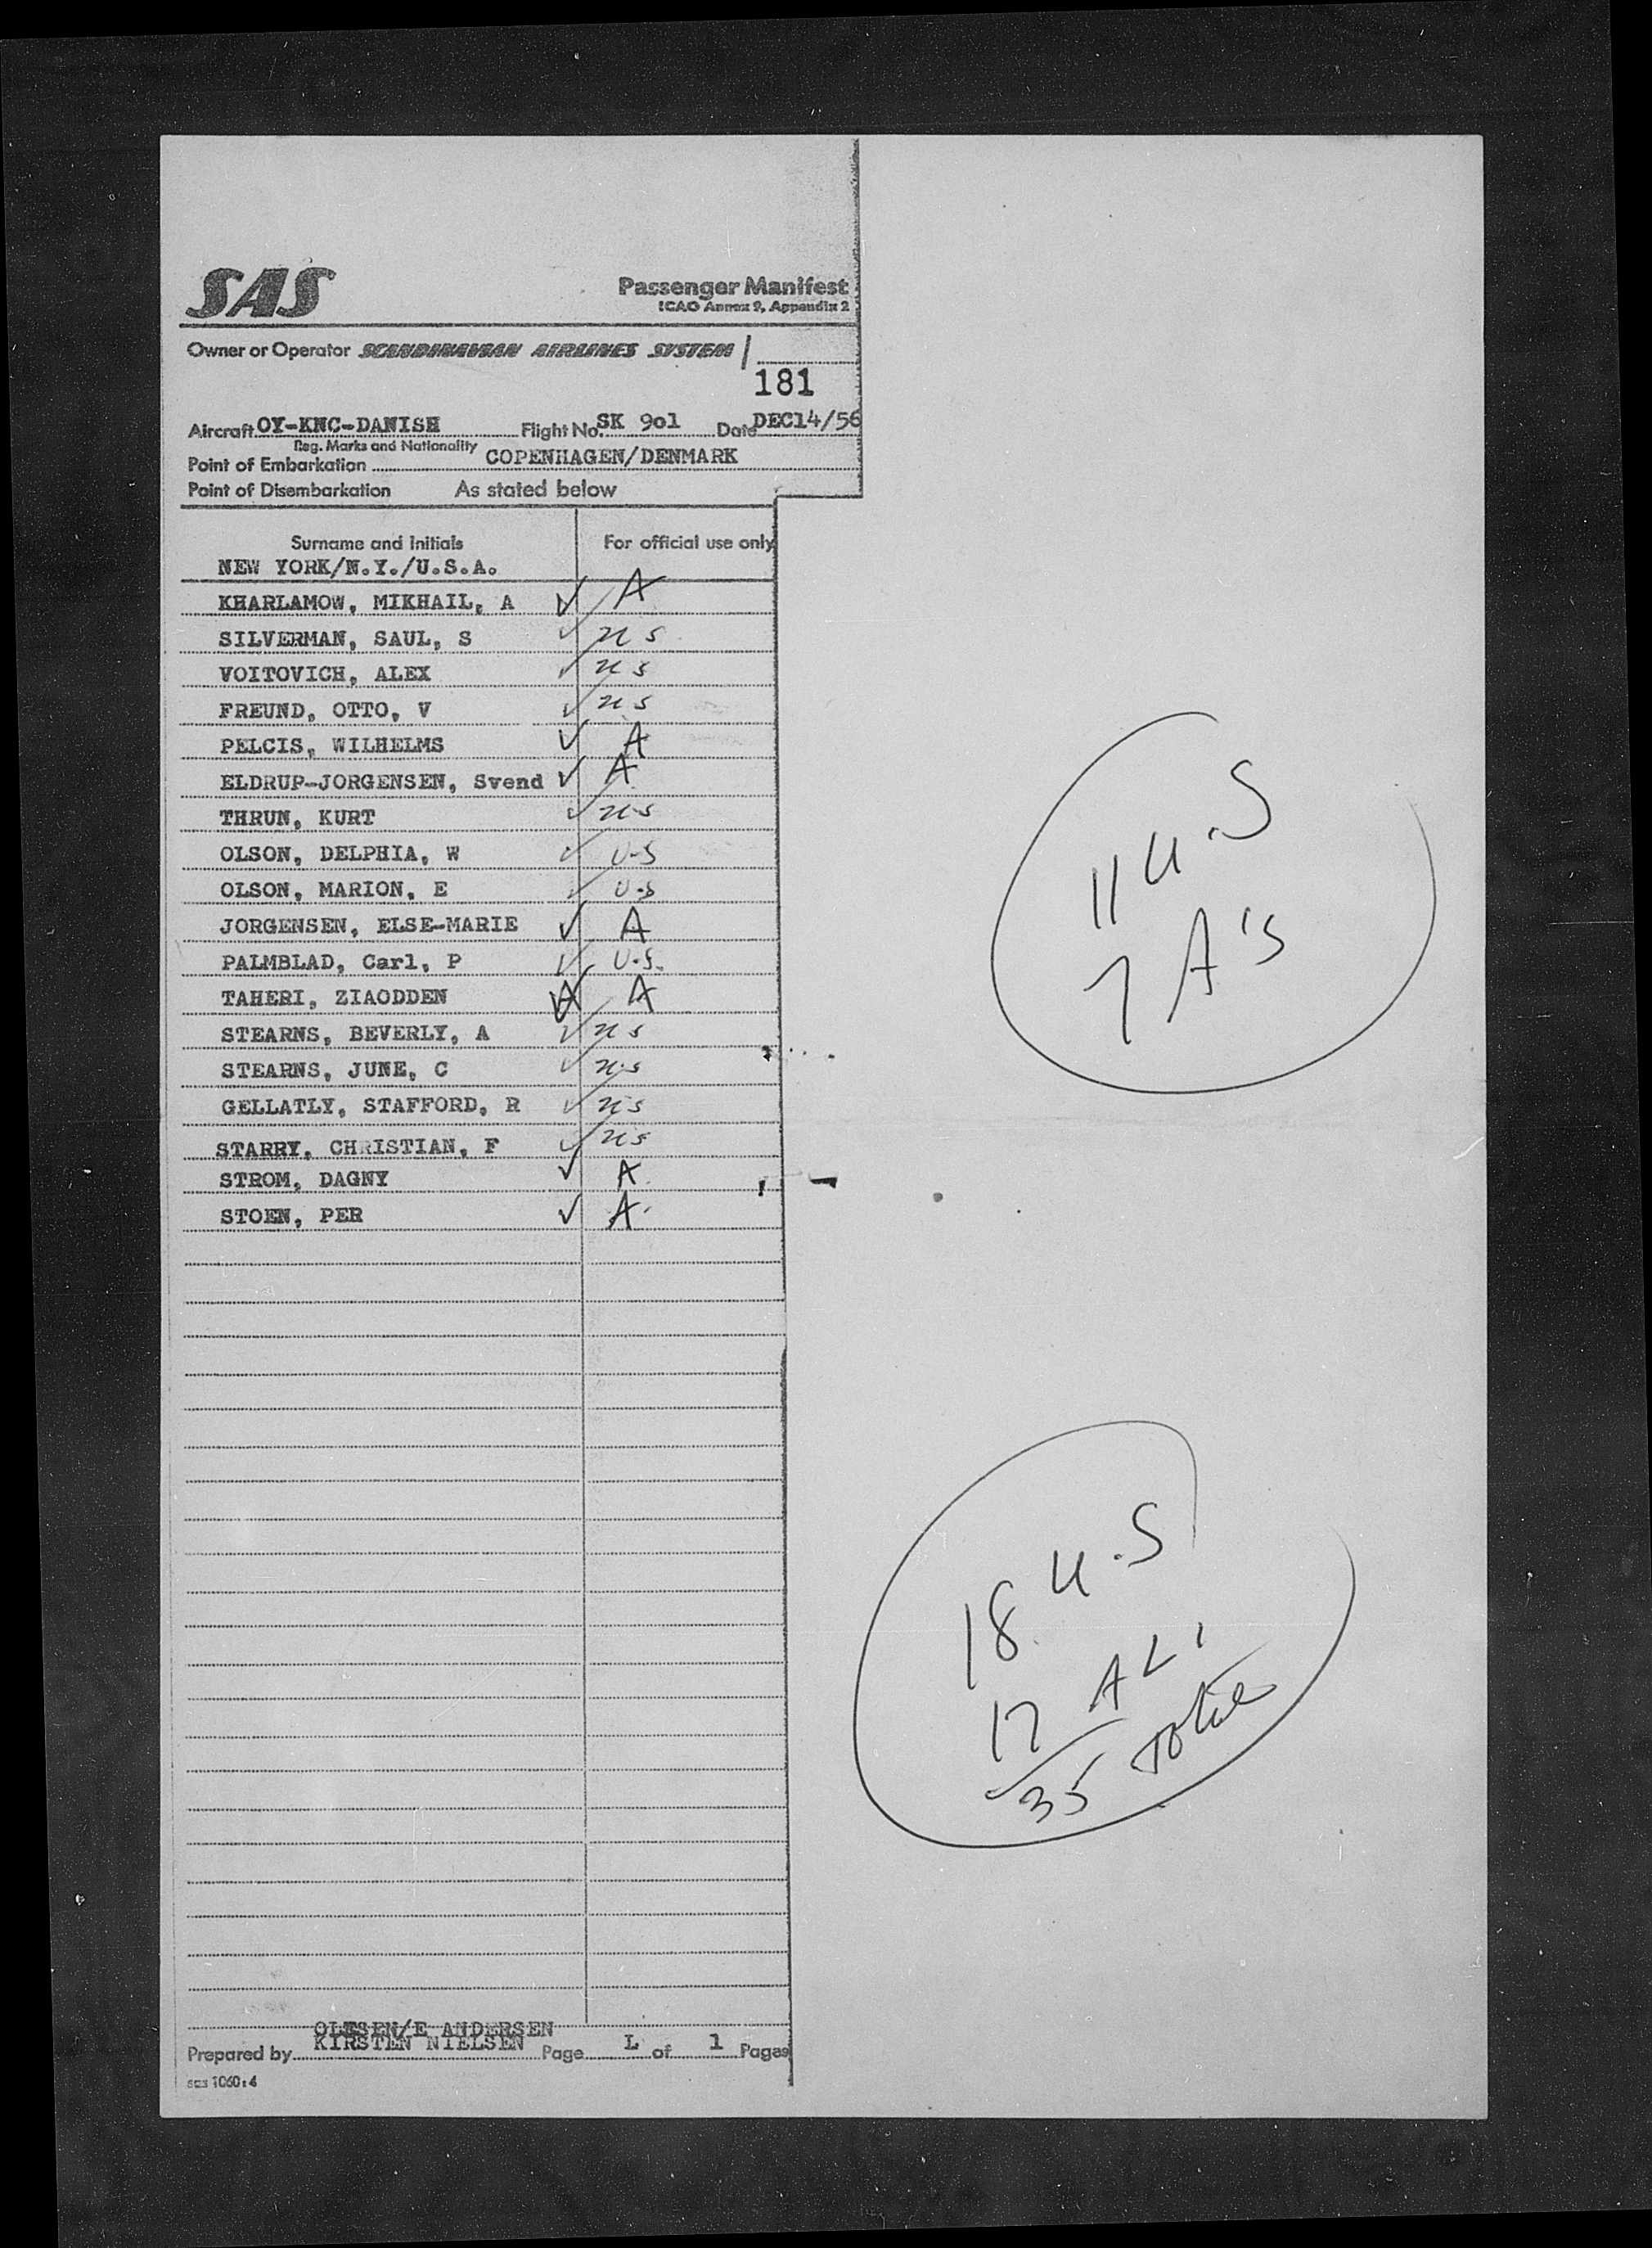 SAS
Passenger Manifest
ICAO Annex 9, Appendix 2
Owner or Operator SCANDINAVIAN AIRLINES SYSTEM
181
Aircraft OY-KNC-DANISH Flight No. SK 901 Date DEC14/56
Reg. Marks and Nationality
Point of Embarkation COPENHAGEN/DENMARK
Point of Disembarkation As stated below
Surname and initials For official use only
NEW YORK/N.Y./U.S.A.
KHARLAMOW, MIKHAIL, A ✓ A
SILVERMAN, SAUL, S ✓ US
VOITOVICH, ALEX ✓ US
FREUND, OTTO, V ✓ US
PELCIS, WILHELMS ✓ A
ELDRUP-JORGENSEN, Svend ✓ A
THRUN, KURT ✓ U.S
OLSON, DELPHIA, W ✓ U-S
OLSON, MARION, E ✓ U.S
JORGENSEN, ELSE-MARIE ✓ A
PALMBLAD, Carl, P ✓ U.S.
TAHERI, ZIAODDEN A A
STEARNS, BEVERLY, A ✓ US
STEARNS, JUNE, C ✓ U.S
GELLATLY, STAFFORD, R ✓ US
STARRY, CHRISTIAN, F ✓ US
STROM, DAGNY ✓ A
STOEN, PER ✓ A
11 U.S
7 A'S
18 U.S
17
35
OLESEN/E ANDERSEN
Prepared by KIRSTEN NIELSEN Page L of 1 Pages
scs 1060:4